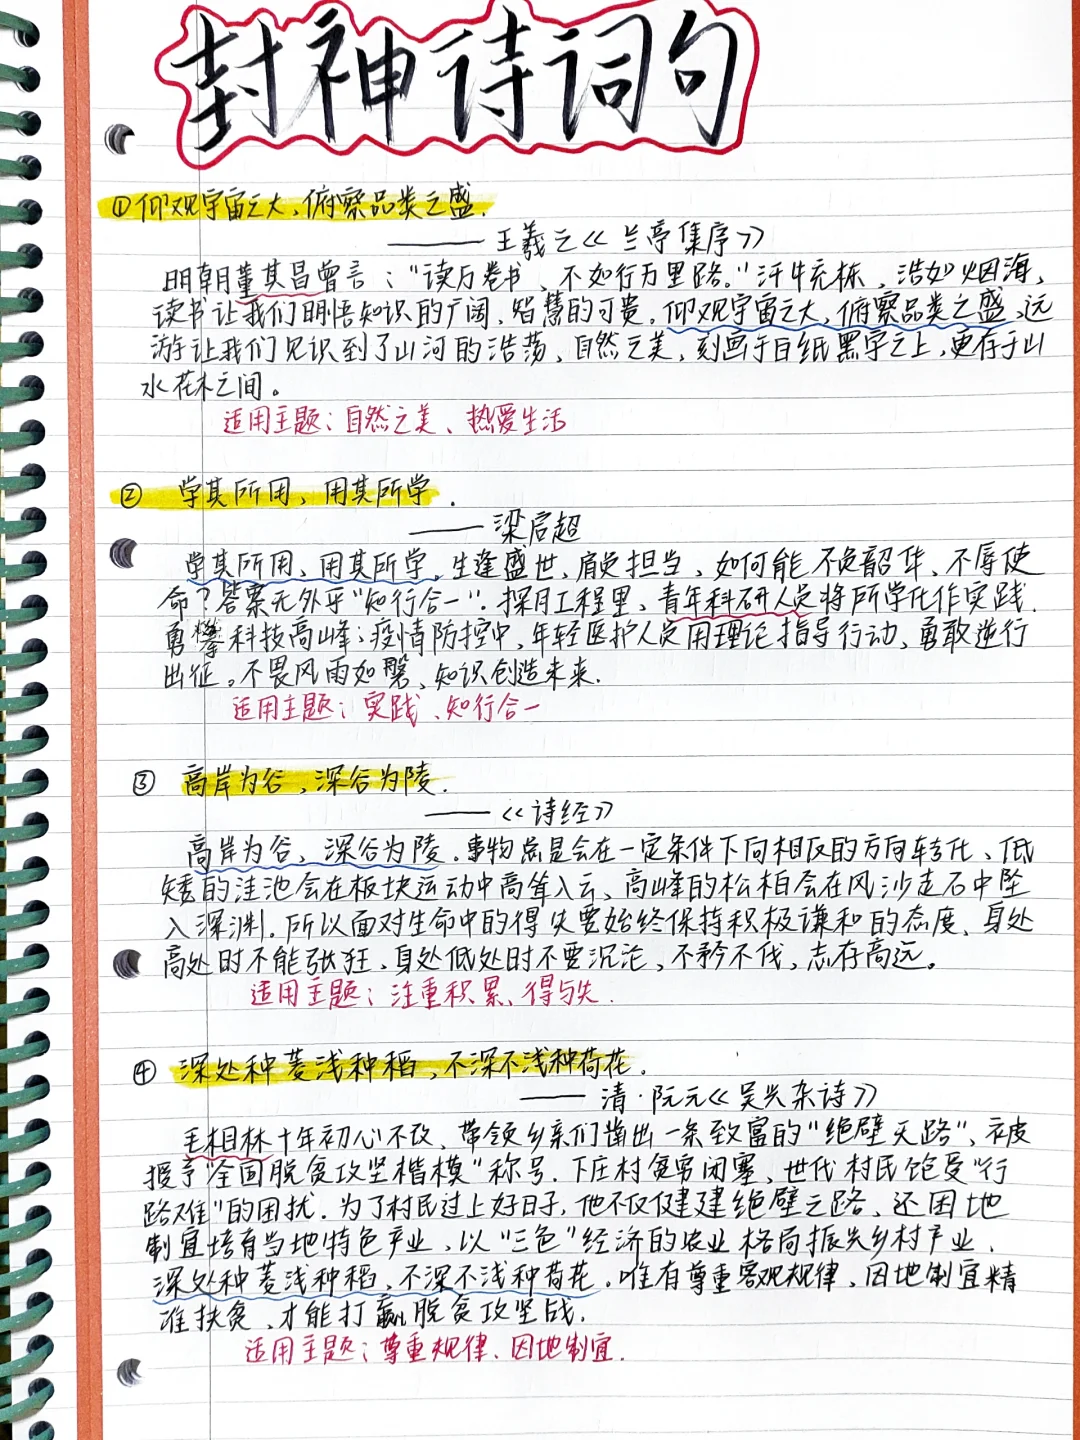 封神诗词句
①仰观宇宙之大，俯察品类之盛.
——王羲之《兰亭集序》
明朝董其昌曾言："读万卷书、不如行万里路."汗牛充栋、浩如烟海，
读书让我们明悟知识的广阔、智慧的可贵，仰观宇宙之大，俯察品类之盛，远
游让我们见识到了山河的浩荡，自然之美，刻画于白纸黑字之上，更存于山
水花木之间。
适用主题：自然之美、热爱生活
② 学其所用、用其所学.
——梁启超
学其所用、用其所学，生逢盛世、肩负担当、如何能不负韶华、不辱使
命？答案无外乎"知行合一".探月工程里、青年科研人员将所学化作实践.
勇攀科技高峰；疫情防控中，年轻医护人员用理论指导行动、勇敢逆行
出征。不畏风雨如磐、知识创造未来.
适用主题：实践、知行合一
③ 高岸为谷，深谷为陵.
——《诗经》
高岸为谷，深谷为陵.事物总是会在一定条件下向相反的方向转化、低
矮的洼池会在板块运动中高耸入云、高峰的松柏会在风沙走石中坠
入深渊.所以面对生命中的得失要始终保持积极谦和的态度、身处
高处时不能张狂，身处低处时不要沉沦，不矜不伐，志存高远。
适用主题：注重积累、得与失.
④ 深处种菱浅种稻，不深不浅种荷花.
——清·阮元《吴兴杂诗》
毛相林十年初心不改、带领乡亲们凿出一条致富的"绝壁天路"、被
授予"全国脱贫攻坚楷模"称号.下庄村贫穷闭塞，世代村民饱受"行
路难"的困扰.为了村民过上好日子，他不仅修建绝壁之路、还因地
制宜培育当地特色产业、以"三色"经济的农业格局振兴乡村产业、
深处种菱浅种稻，不深不浅种荷花.唯有尊重客观规律、因地制宜精
准扶贫、才能打赢脱贫攻坚战.
适用主题：尊重规律、因地制宜.